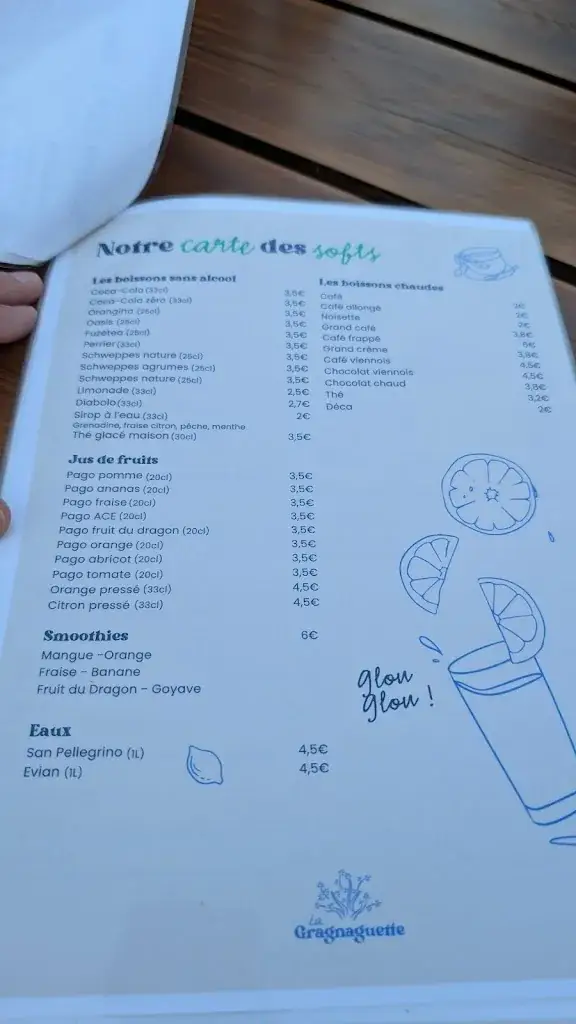 Notre carte des softs
Les boissons sans alcool
Coca-Cola (33cl) 3,5€
Coca-Cola zéro (33cl) 3,5€
Orangina (25cl) 3,5€
Oasis (25cl) 3,5€
Fuzetea (25cl) 3,5€
Perrier (33cl) 3,5€
Schweppes nature (25cl) 3,5€
Schweppes agrumes (25cl) 3,5€
Schweppes nature (25cl) 3,5€
Limonade (33cl) 2,5€
Diabolo (33cl) 2,7€
Sirop à l'eau (33cl) 2€
Grenadine, fraise citron, pêche, menthe
Thé glacé maison (30cl) 3,5€
Les boissons chaudes
Café 2€
Café allongé 2€
Noisette 2€
Grand café 3,8€
Café frappé 6€
Grand crème 3,8€
Café viennois 4,5€
Chocolat viennois 4,5€
Chocolat chaud 3,8€
Thé 3,2€
Déca 2€
Jus de fruits
Pago pomme (20cl) 3,5€
Pago ananas (20cl) 3,5€
Pago fraise (20cl) 3,5€
Pago ACE (20cl) 3,5€
Pago fruit du dragon (20cl) 3,5€
Pago orange (20cl) 3,5€
Pago abricot (20cl) 3,5€
Pago tomate (20cl) 3,5€
Orange pressé (33cl) 4,5€
Citron pressé (33cl) 4,5€
Smoothies 6€
Mangue -Orange
Fraise - Banane
Fruit du Dragon - Goyave
glou
glou !
Eaux
San Pellegrino (1L) 4,5€
Evian (1L) 4,5€
La
Gragnaguette